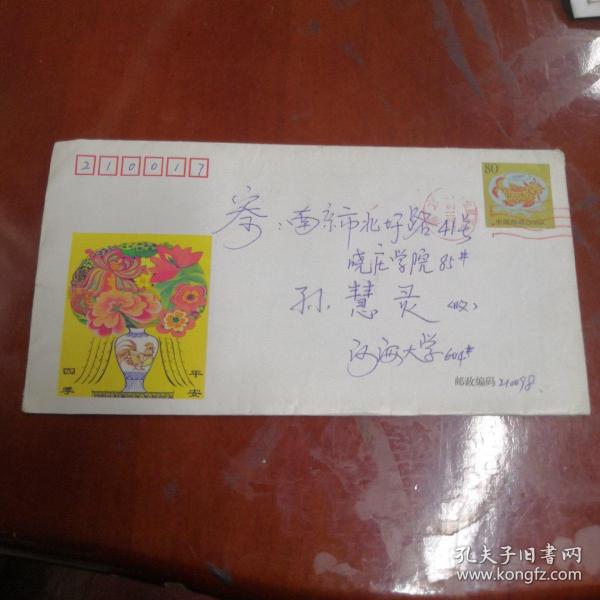 210017
80
寄:南京市北圩路41号
晓庄学院85#
孙慧灵(收)
河海大学604#
邮政编码210098
四季
平安
孔夫子旧书网
www.kongfz.com